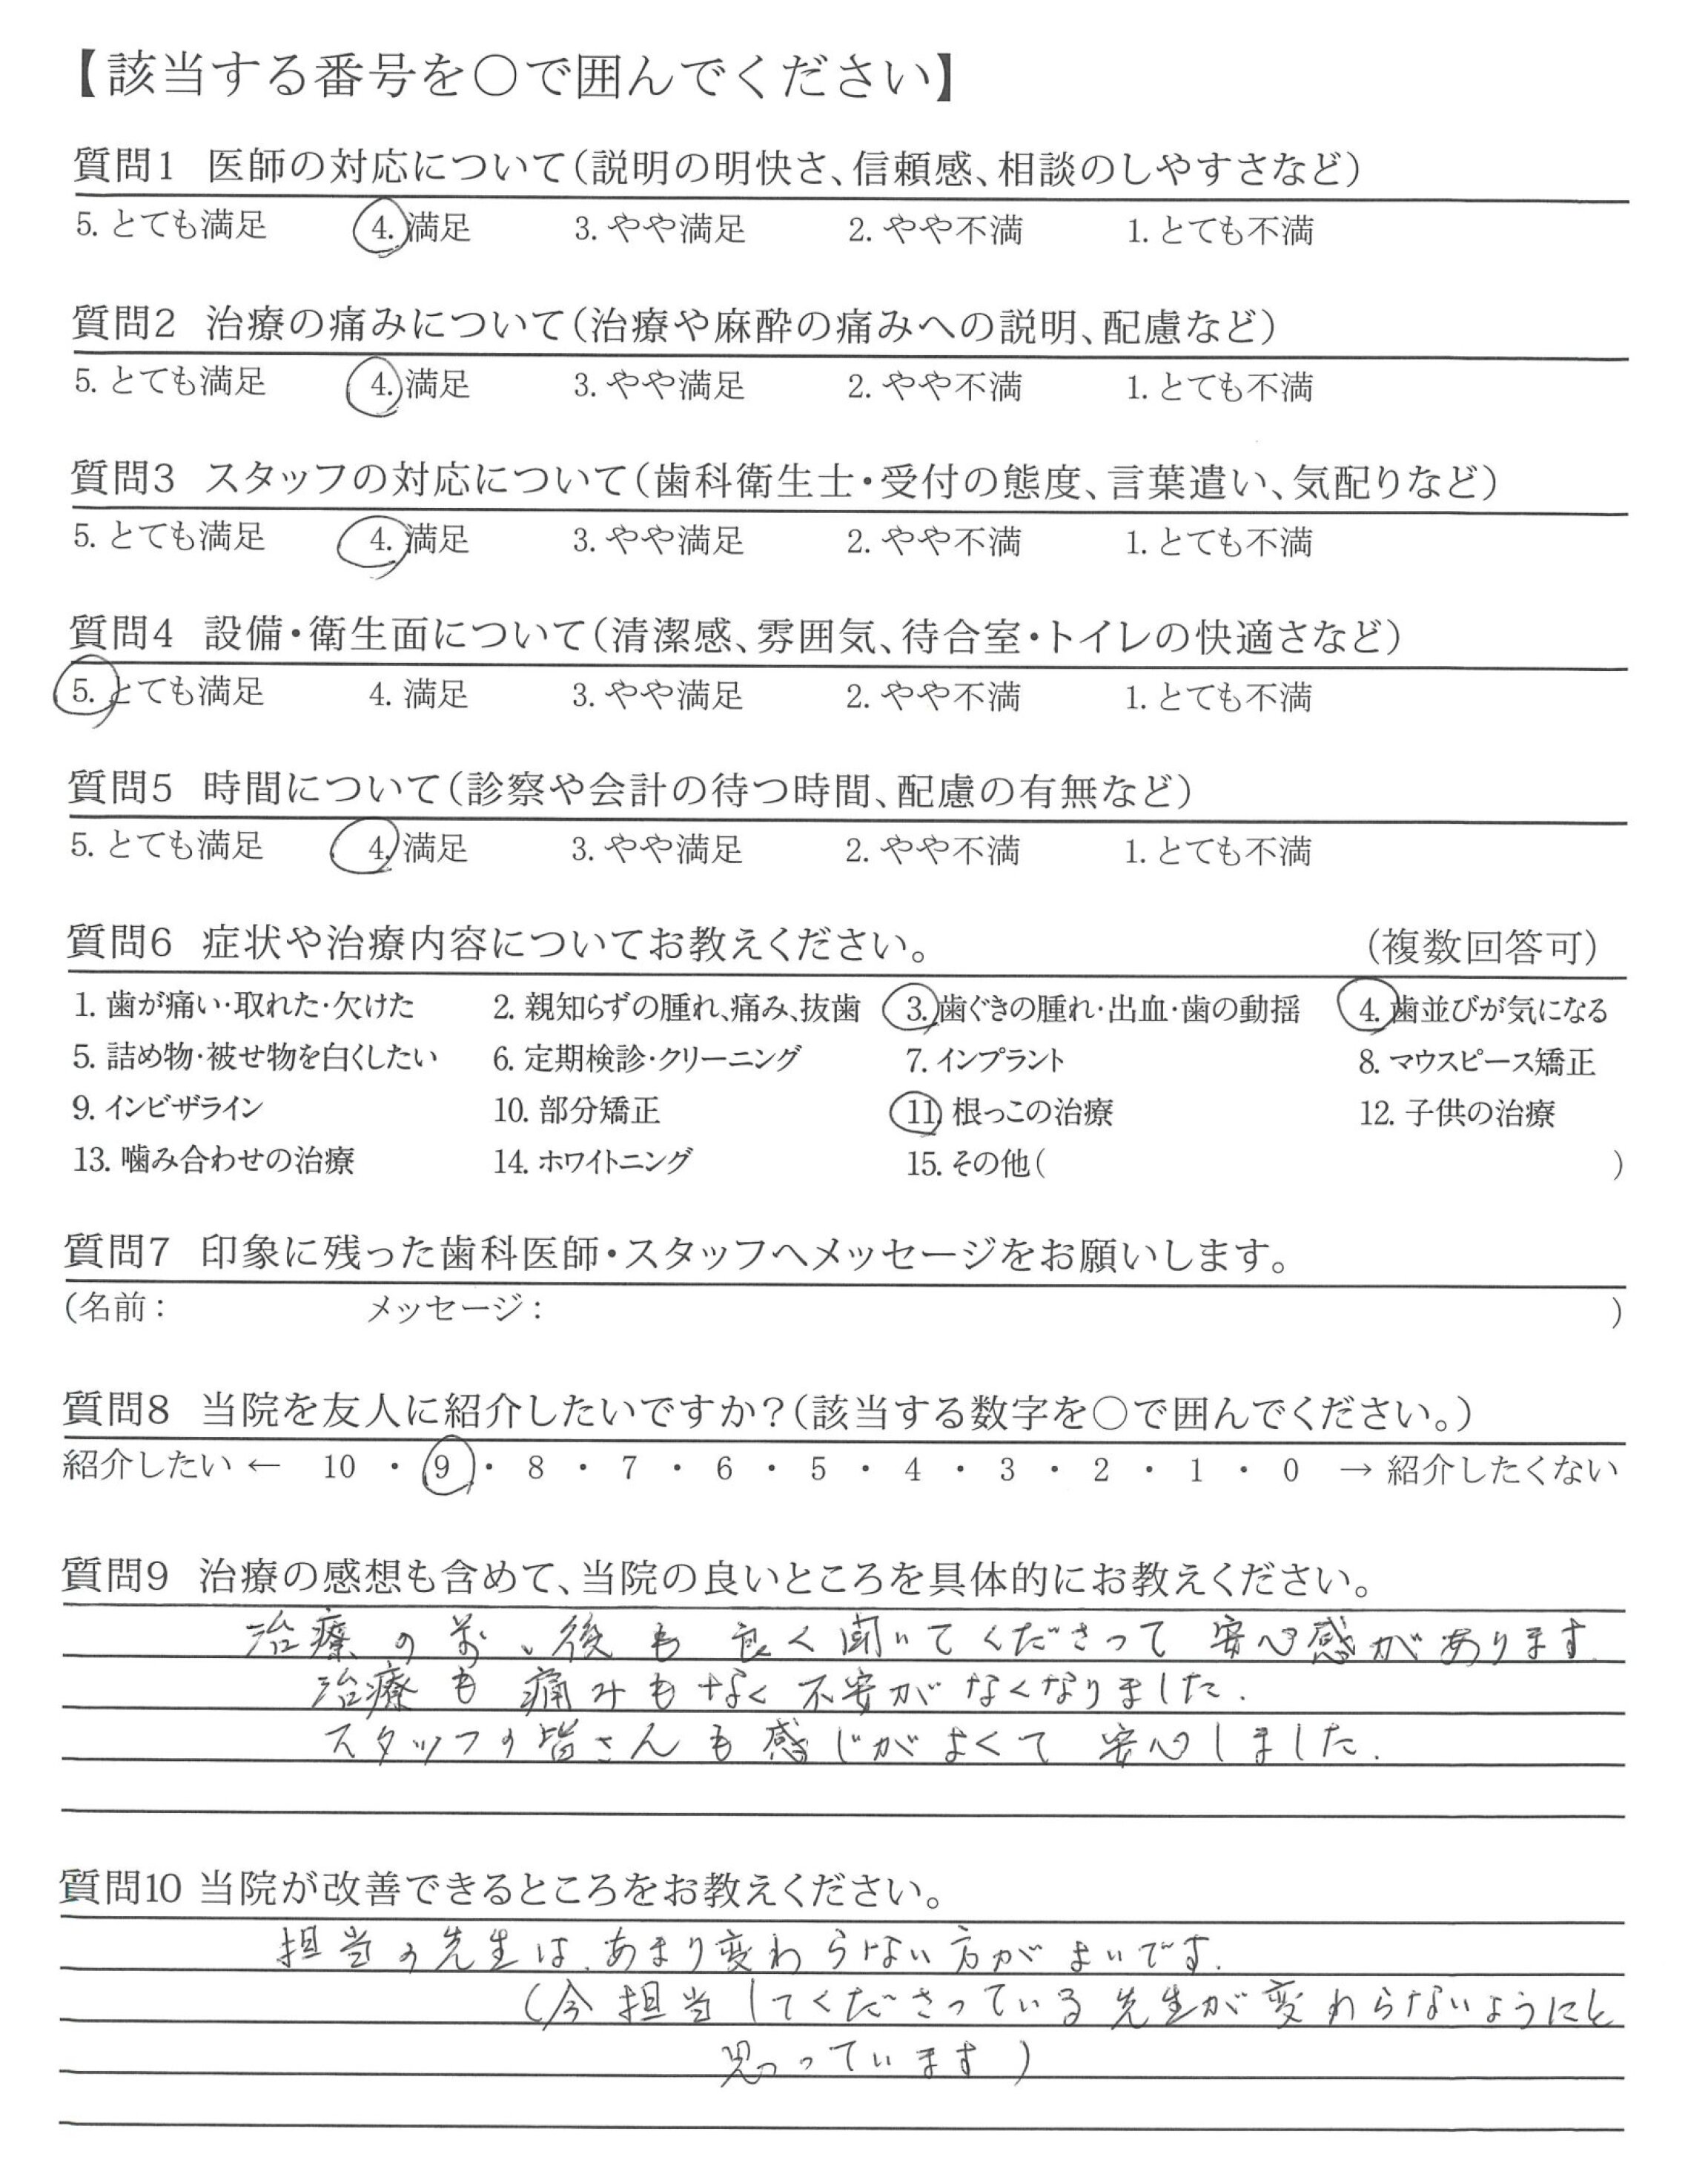 【該当する番号を○で囲んでください】
質問1 医師の対応について(説明の明快さ、信頼感、相談のしやすさなど)
5. とても満足 4. 満足 3. やや満足 2. やや不満 1. とても不満
質問2 治療の痛みについて(治療や麻酔の痛みへの説明、配慮など)
5. とても満足 4. 満足 3. やや満足 2. やや不満 1. とても不満
質問3 スタッフの対応について(歯科衛生士・受付の態度、言葉遣い、気配りなど)
5. とても満足 4. 満足 3. やや満足 2. やや不満 1. とても不満
質問4 設備・衛生面について(清潔感、雰囲気、待合室・トイレの快適さなど)
5. とても満足 4. 満足 3. やや満足 2. やや不満 1. とても不満
質問5 時間について(診察や会計の待つ時間、配慮の有無など)
5. とても満足 4. 満足 3. やや満足 2. やや不満 1. とても不満
質問6 症状や治療内容についてお教えください。 (複数回答可)
1. 歯が痛い・取れた・欠けた 2. 親知らずの腫れ、痛み、抜歯 3. 歯ぐきの腫れ・出血・歯の動揺 4. 歯並びが気になる
5. 詰め物・被せ物を白くしたい 6. 定期検診・クリーニング 7. インプラント 8. マウスピース矯正
9. インビザライン 10. 部分矯正 11. 根っこの治療 12. 子供の治療
13. 噛み合わせの治療 14. ホワイトニング 15. その他( )
質問7 印象に残った歯科医師・スタッフへメッセージをお願いします。
(名前: メッセージ: )
質問8 当院を友人に紹介したいですか?(該当する数字を○で囲んでください。)
紹介したい ← 10 ・ 9 ・ 8 ・ 7 ・ 6 ・ 5 ・ 4 ・ 3 ・ 2 ・ 1 ・ 0 → 紹介したくない
質問9 治療の感想も含めて、当院の良いところを具体的にお教えください。
治療の前、後も良く聞いてくださって安心感があります.
治療も痛みもなく不安がなくなりました.
スタッフの皆さんも感じがよくて安心しました.
質問10 当院が改善できるところをお教えください。
担当の先生は、あまり変わらない方がよいです.
(今担当してくださっている先生が変わらないようにと
思っています)